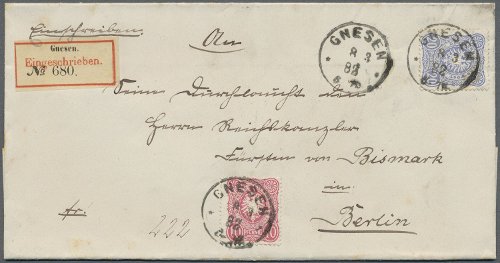 Einschreiben
Gnesen.
Eingeschrieben.
№ 680.
An
GNESEN
8 3
82
GNESEN
8 3
82
Seine Durchlaucht den
Herrn Reichskanzler
Fürsten von Bismark
in
Berlin
fr.
222
GNESEN
8 3
82
10 PFENNIG 10